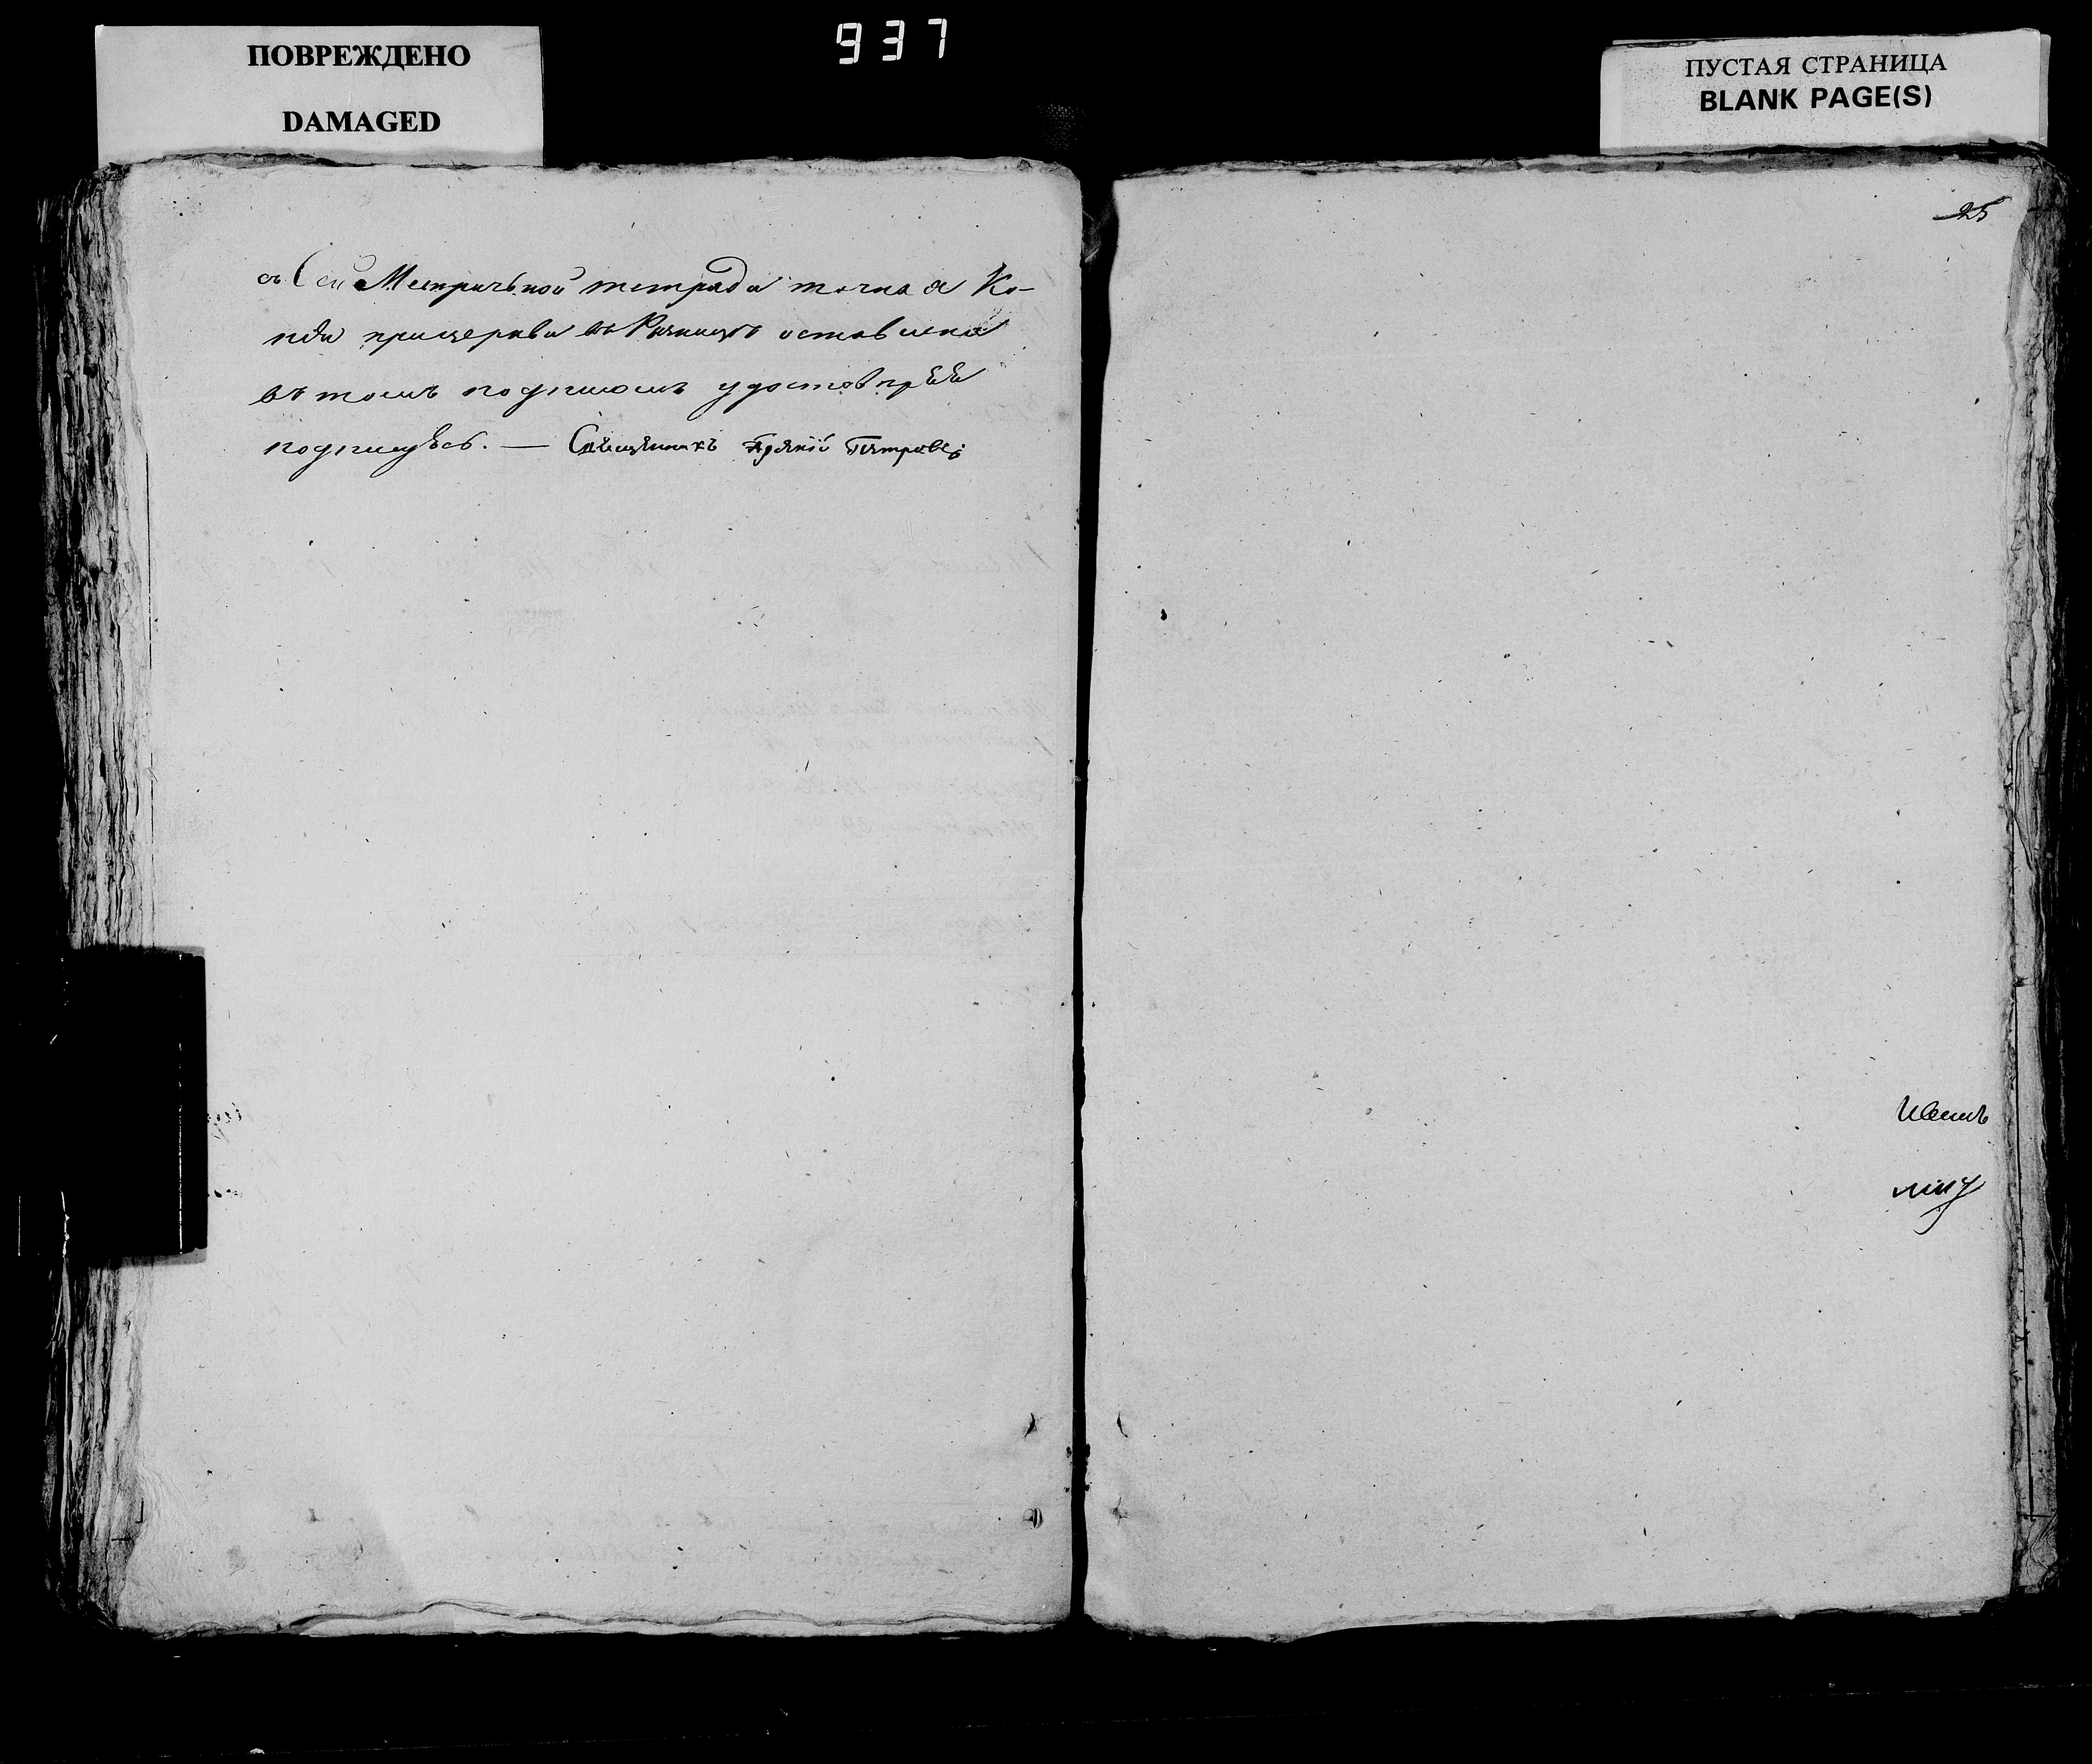 ПОВРЕЖДЕНО
DAMAGED
937
ПУСТАЯ СТРАНИЦА
BLANK PAGE(S)
25
съ Сей Метричьной тетради точная Ко-
пія прицеркви въ Ризницѣ оставлена
въ томъ подписомъ удостовѣряя
подписуюсь. — Священникъ Петровъ